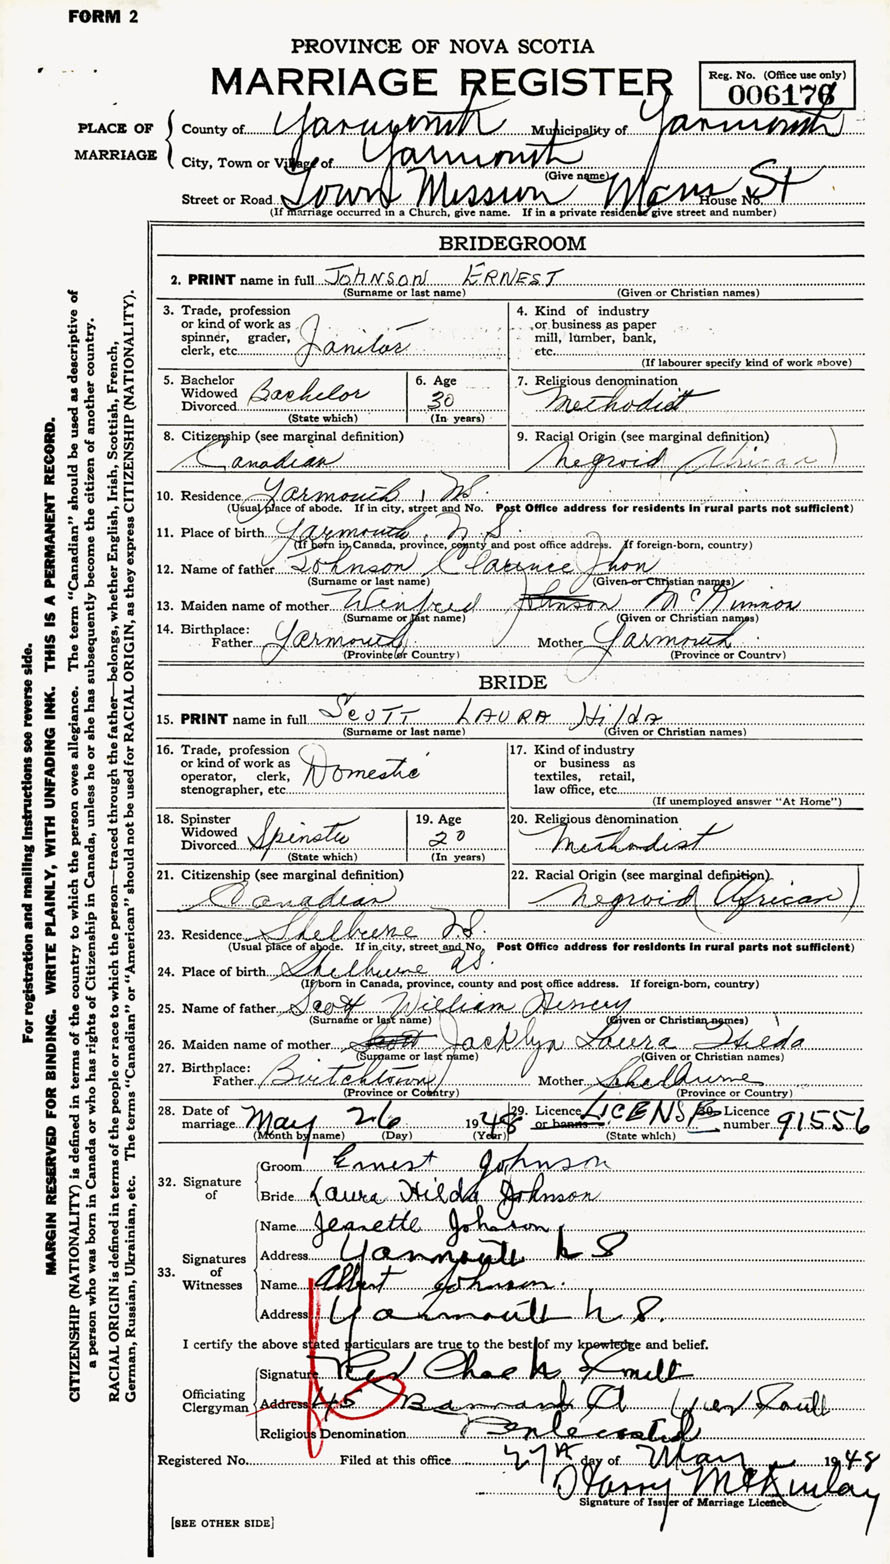 FORM 2
PROVINCE OF NOVA SCOTIA
MARRIAGE REGISTER
Reg. No. (Office use only)
006176
PLACE OF MARRIAGE
County of Yarmouth Municipality of Yarmouth
City, Town or Village of Yarmouth
(Give name)
Street or Road Town Mission Main St House No.
(If marriage occurred in a Church, give name. If in a private residence give street and number)
BRIDEGROOM
2. PRINT name in full JOHNSON ERNEST
(Surname or last name) (Given or Christian names)
3. Trade, profession or kind of work as spinner, grader, clerk, etc. Janitor
4. Kind of industry or business as paper mill, lumber, bank, etc.
(If labourer specify kind of work above)
5. Bachelor Widowed Divorced Bachelor
(State which)
6. Age 30
(In years)
7. Religious denomination Methodist
8. Citizenship (see marginal definition)
Canadian
9. Racial Origin (see marginal definition)
Negroid (African)
10. Residence Yarmouth, N.S.
(Usual place of abode. If in city, street and No. Post Office address for residents in rural parts not sufficient)
11. Place of birth Yarmouth, N.S.
(If born in Canada, province, county and post office address. If foreign-born, country)
12. Name of father Johnson Clarence Jhon
(Surname or last name) (Given or Christian names)
13. Maiden name of mother Winfred Johnson McKinnon
(Surname or last name) (Given or Christian names)
14. Birthplace:
Father Yarmouth Mother Yarmouth
(Province or Country) (Province or Country)
BRIDE
15. PRINT name in full SCOTT LAURA Hilda
(Surname or last name) (Given or Christian names)
16. Trade, profession or kind of work as operator, clerk, stenographer, etc. Domestic
17. Kind of industry or business as textiles, retail, law office, etc.
(If unemployed answer "At Home")
18. Spinster Widowed Divorced Spinster
(State which)
19. Age 20
(In years)
20. Religious denomination Methodist
21. Citizenship (see marginal definition)
Canadian
22. Racial Origin (see marginal definition)
Negroid (African)
23. Residence Shelburne N.S.
(Usual place of abode. If in city, street and No. Post Office address for residents in rural parts not sufficient)
24. Place of birth Shelburne N.S.
(If born in Canada, province, county and post office address. If foreign-born, country)
25. Name of father Scott William Henery
(Surname or last name) (Given or Christian names)
26. Maiden name of mother Scott Jacklyn Laura Hilda
(Surname or last name) (Given or Christian names)
27. Birthplace:
Father Birtchtown Mother Shelburne
(Province or Country) (Province or Country)
28. Date of marriage May 26 1948
(Month by name) (Day) (Year)
29. Licence or banns LICENSE
(State which)
30. Licence number 91556
32. Signature of
Groom Ernest Johnson
Bride Laura Hilda Johnson
33. Signatures of Witnesses
Name Jeanette Johnson
Address Yarmouth N S
Name Albert Johnson.
Address Yarmouth N S.
I certify the above stated particulars are true to the best of my knowledge and belief.
Officiating Clergyman
Signature Rev
Address 45
Religious Denomination Pentecostal
Registered No. Filed at this office 27th day of May 1948
Harry McKinlay
Signature of Issuer of Marriage Licence
[SEE OTHER SIDE]
For registration and mailing instructions see reverse side.
MARGIN RESERVED FOR BINDING. WRITE PLAINLY, WITH UNFADING INK. THIS IS A PERMANENT RECORD.
CITIZENSHIP (NATIONALITY) is defined in terms of the country to which the person owes allegiance. The term "Canadian" should be used as descriptive of
a person who was born in Canada or who has rights of Citizenship in Canada, unless he or she has subsequently become the citizen of another country.
RACIAL ORIGIN is defined in terms of the people or race to which the person—traced through the father—belongs, whether English, Irish, Scottish, French,
German, Russian, Ukrainian, etc. The terms "Canadian" or "American" should not be used for RACIAL ORIGIN, as they express CITIZENSHIP (NATIONALITY).